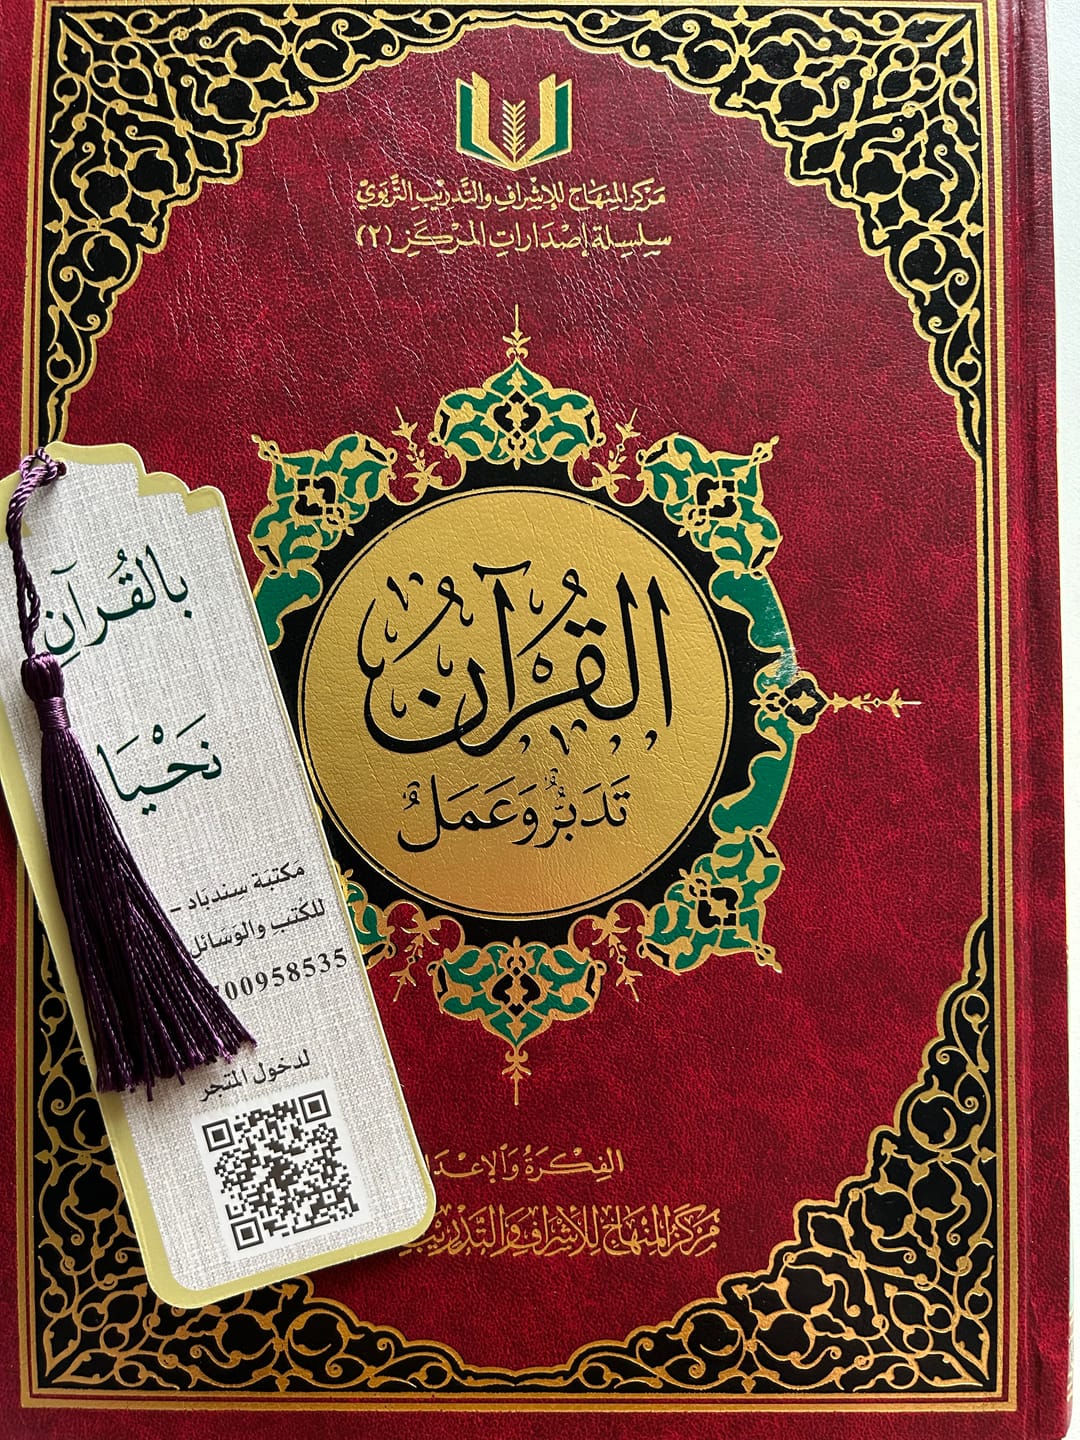 مركز المنهاج للإشراف والتدريب التربوي
سلسلة إصدارات المركز (٢)
القرآن
تدبر وعمل
الفكرة والإعدا
مركز المنهاج للإشراف والتدريب
بالقرآن
نحيا
مكتبة سندباد -
للكتب والوسائل
00958535
لدخول المتجر